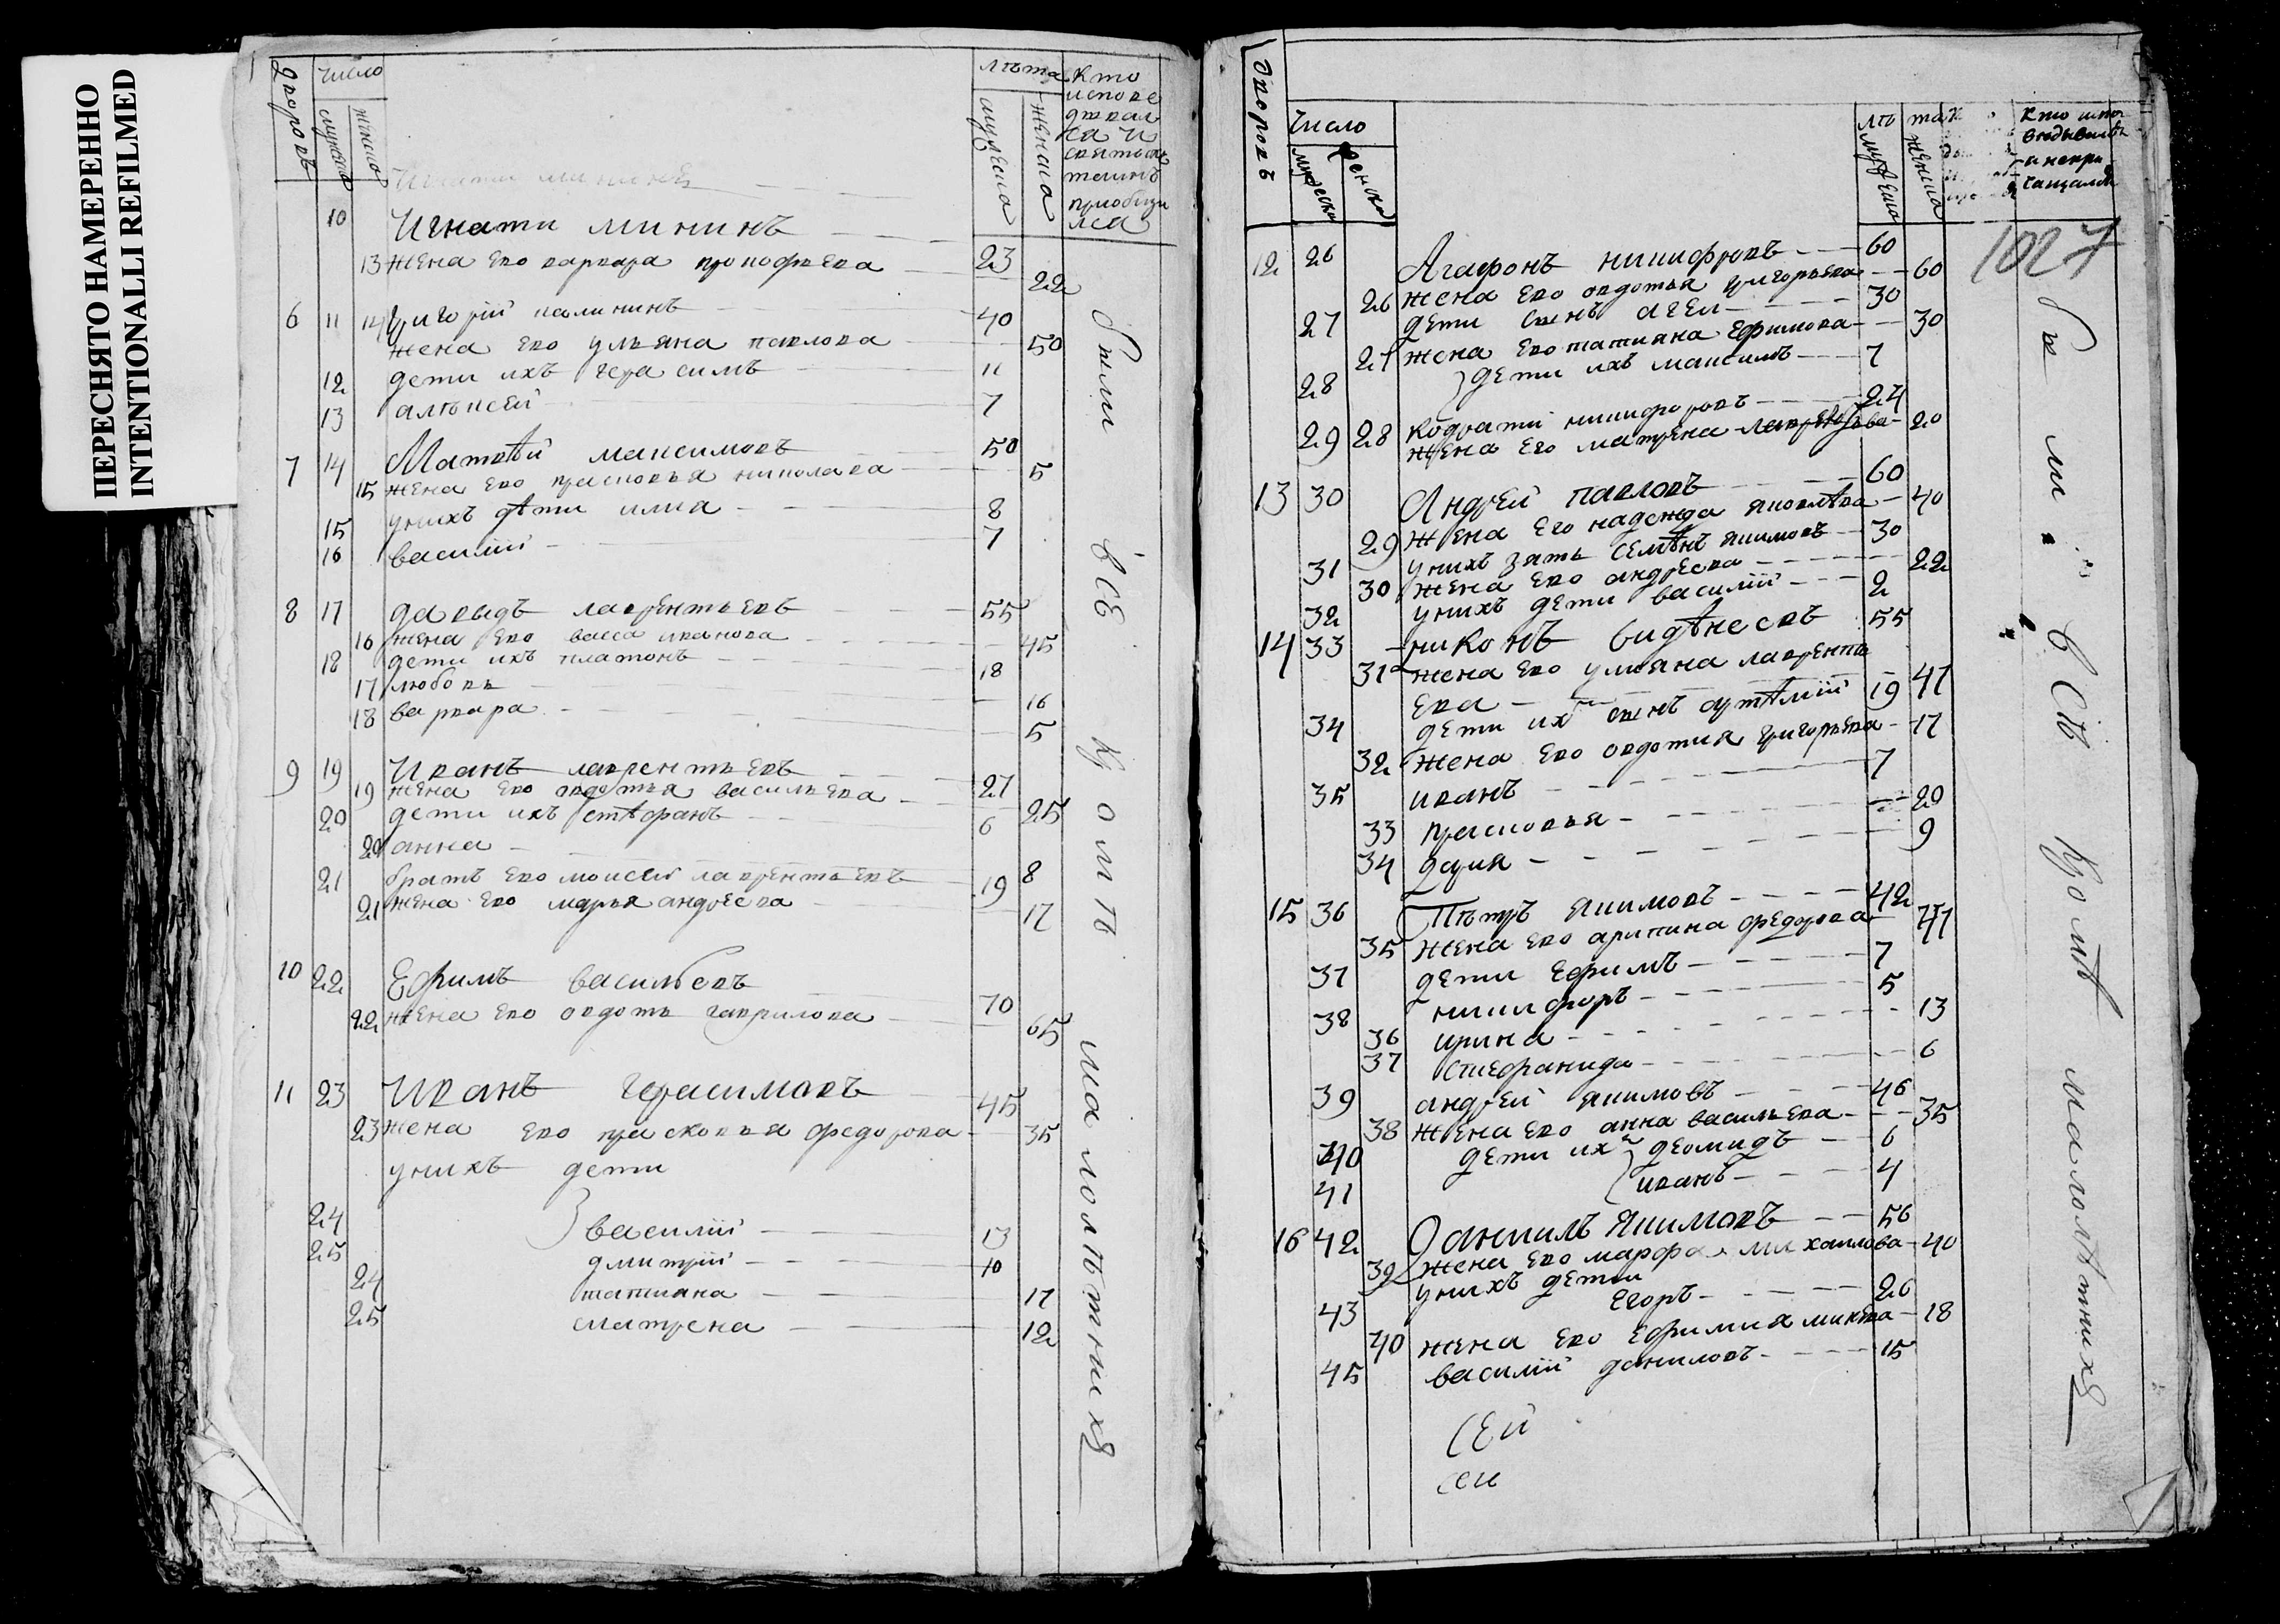 ПЕРЕСНЯТО НАМЕРЕННО
INTENTIONALLI REFILMED
дворовъ
число
мужеска
женска
лѣта
мужеска
женска
кто
испове
дывал
ся и
святых
таинъ
приобщи
лся
Игнати мининъ
10 Игнати мининъ — 23
13 жена ево варвара прокофьева — 22
6 11 14 григорий калининъ — 40
жена ево ульяна павлова — 50
12 дети ихъ герасимъ — 11
13 алѣксей — 7
7 14 Матвѣй максимовъ — 50
15 жена ево прасковья николава — 5
15 унихъ дѣти илиа — 8
16 василий — 7
8 17 давыдъ лаврентьевъ — 55
16 жена ево васса иванова — 45
18 дети ихъ платонъ — 18
17 любовь — 16
18 варвара — 5
9 19 Иванъ лаврентьевъ — 27
19 жена ево авдотья васильева — 25
20 дети ихъ стѣфанъ — 6
20 анна — 8
21 братъ ево моисей лаврентьевъ — 19
21 жена ево марья андреева — 17
10 22 Ефимъ васильевъ — 70
22 жена ево овдоть гаврилова — 65
11 23 Иванъ герасимовъ — 45
23 жена ево прасковья федорова — 35
унихъ дети
24 василий — 13
25 дмитрий — 10
24 татиана — 17
25 матрена — 12
были все кромѣ малолѣтнихъ
дворовъ
число
мужеска
женска
лѣта
мужеска
женска
кто испо
ведывался
и непри
чащался
1027
12 26 Агафонъ никифровъ — 60
26 жена ево овдотья григорьева — 60
27 дети сынъ аѳеи — 30
27 жена ево татиана Ефимова — 30
28 дети ихъ максимъ — 7
29 28 кодрати никифоровъ — 24
жена его матрена — 20
13 30 Андрей павловъ — 60
29 жена его надежда яковлѣва — 40
31 унихъ зять семѣнъ якимовъ — 30
30 жена ево андреева — 22
32 унихъ дети василий — 2
14 33 никонъ — 55
31 жена ево улияна лавренть
ева — 47
34 дети ихъ сынъ — 19
32 жена ево овдотия григорьева — 17
35 иванъ — 7
33 прасковья — 20
34 дария — 9
15 36 Пѣтръ якимовъ — 42
35 жена ево арипина федорова — 41
37 дети Ефимъ — 7
38 никифоръ — 5
36 ирина — 13
37 стефанида — 6
39 андрей якимовъ — 46
38 жена ево анна васильева — 35
40 дети ихъ деомидъ — 6
41 иванъ — 4
16 42 Данилъ якимовъ — 56
39 жена ево марфа михаилова — 40
унихъ дети
43 Егоръ — 26
40 жена ево Ефимия — 18
45 василий даниловъ — 15
сей
сеи
бы ли всѣ кромѣ малолѣтнихъ